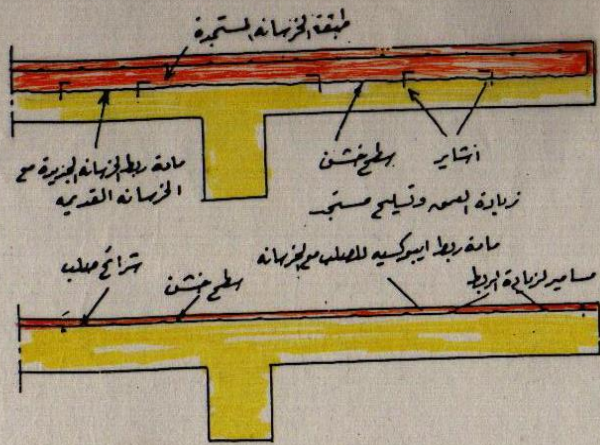 طبقة الخرسانه المستجدة
مادة ربط الخرسانه الجديدة مع
الخرسانه القديمه
سطح خشن
اشاير
زيادة العمق وتسليح مستجد
مادة ربط ايبوكسيه للصلب مع الخرسانه
شرائح صلب
سطح خشن
مسامير لزيادة الربط